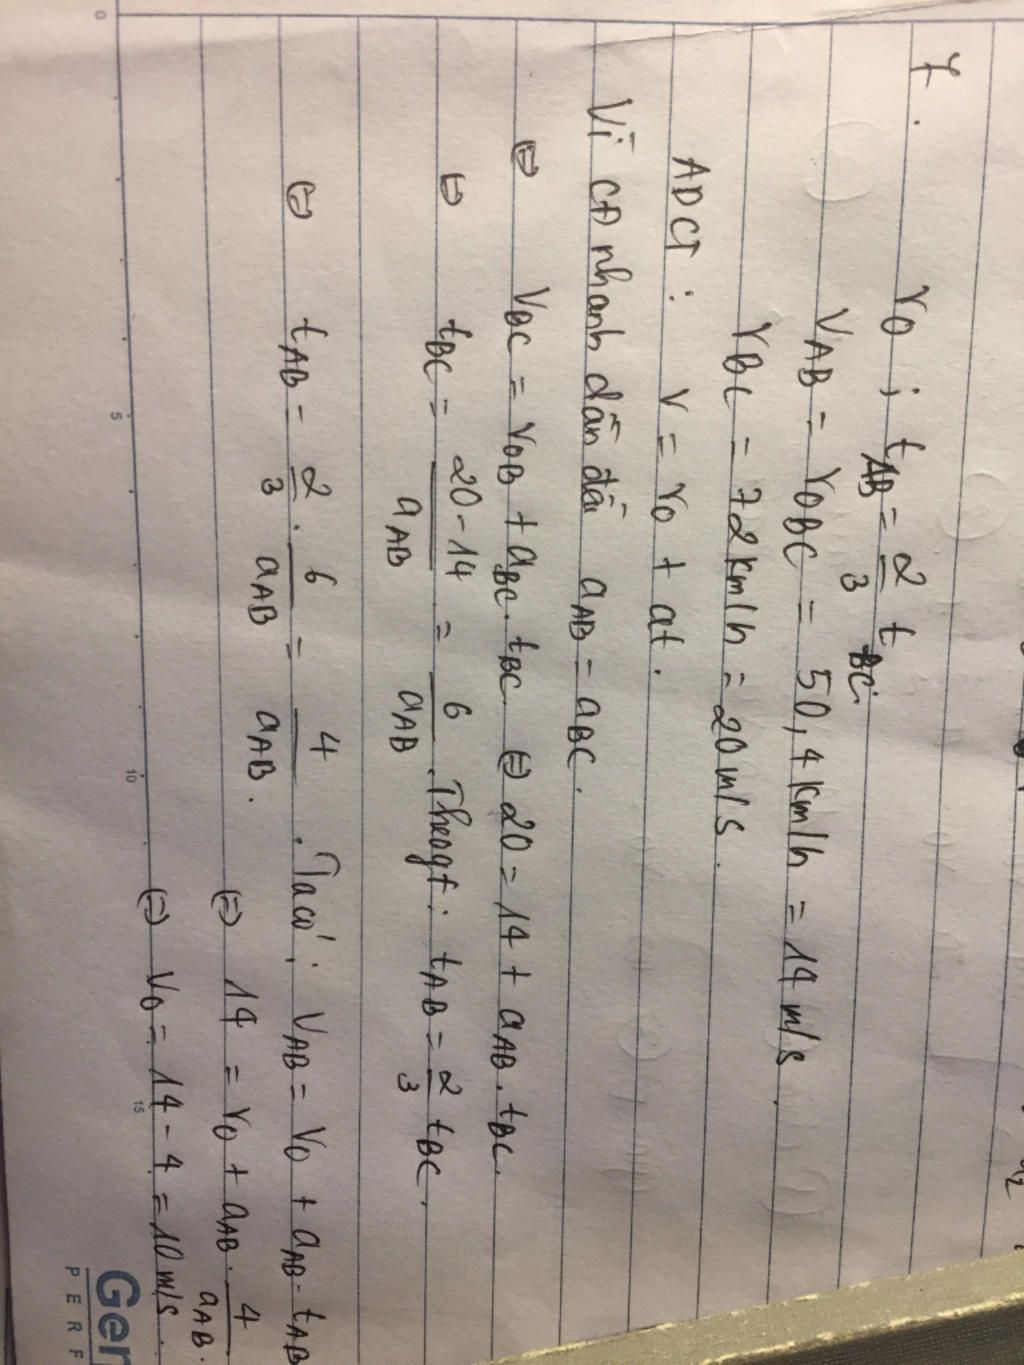 7.
v0 ; tAB = 2/3 tBC.
VAB = v0BC = 50,4 km/h = 14 m/s.
vBC = 72 km/h = 20 m/s.
ADCT : v = v0 + at.
Vì CĐ nhanh dần đều aAB = aBC.
⇔ VBC = v0B + aBC. tBC ⇔ 20 = 14 + aAB. tBC.
⇔ tBC = 20-14/aAB = 6/aAB. Theo gt : tAB = 2/3 tBC.
⇔ tAB = 2/3 . 6/aAB = 4/aAB. Ta có : VAB = V0 + aAB. tAB
⇔ 14 = v0 + aAB. 4/aAB.
⇔ V0 = 14 - 4 = 10 m/s.
0
5
10
15
Ger
PERF